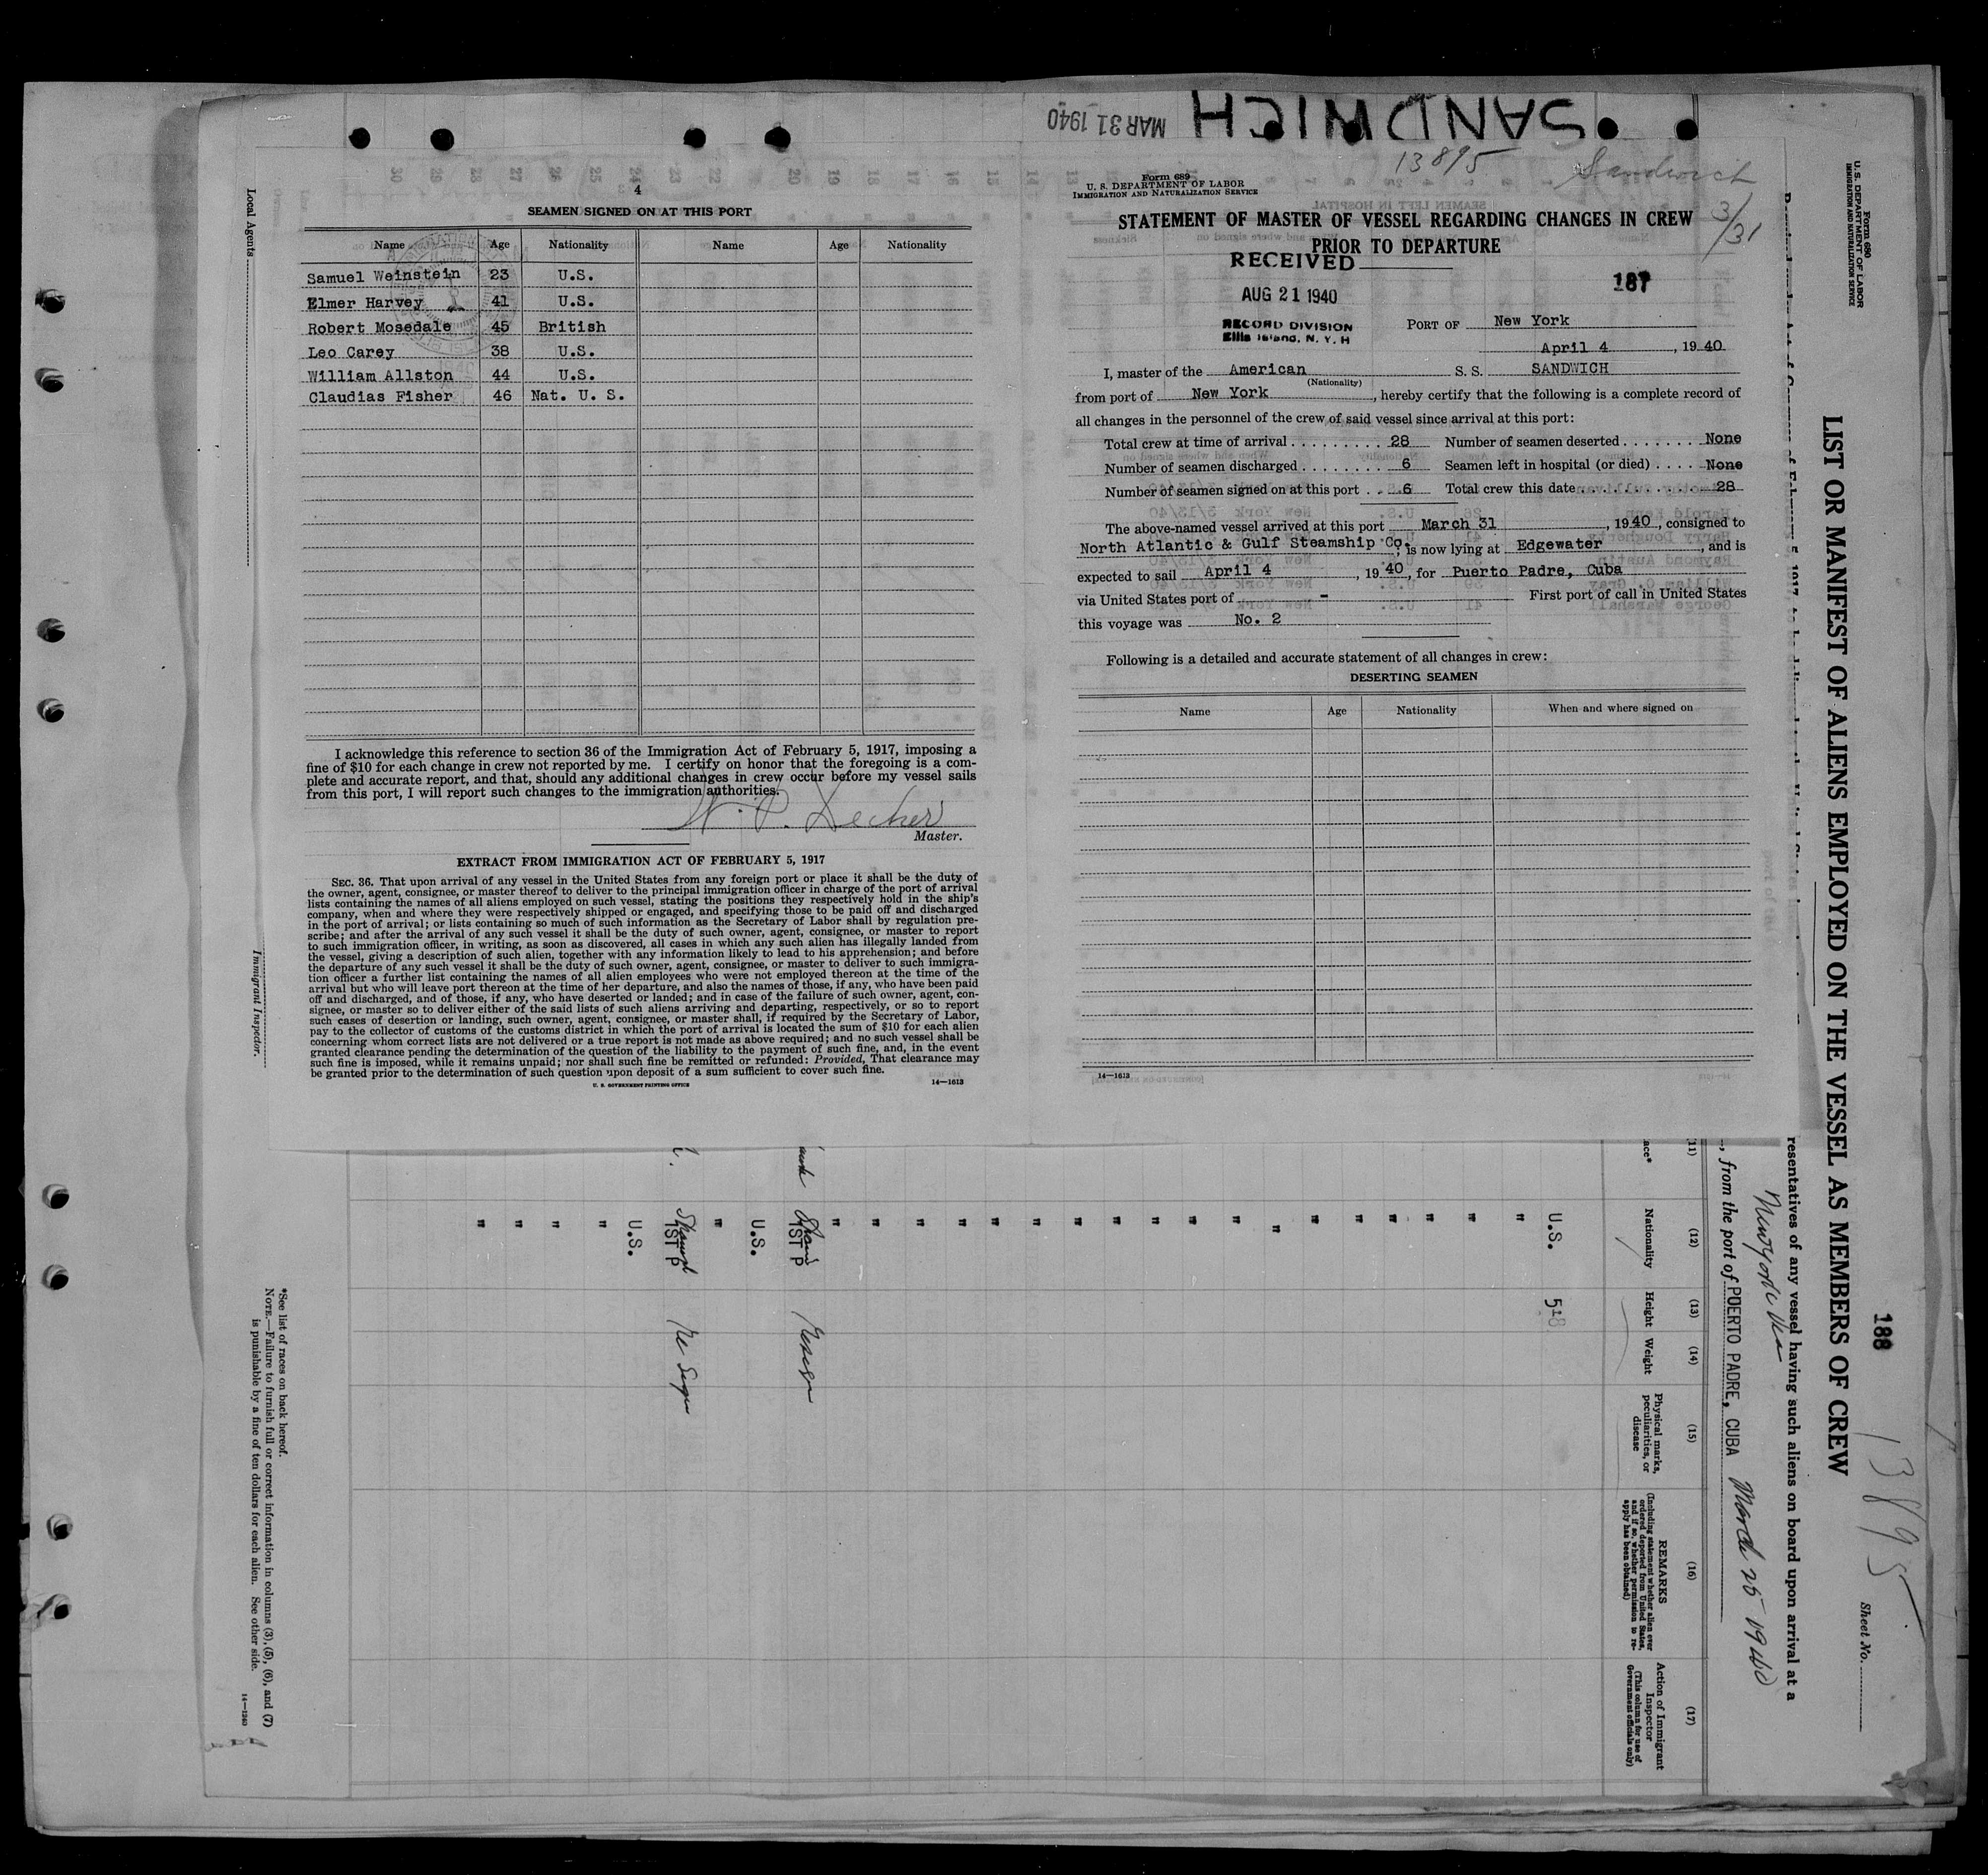 MAR 31 1940
SANDWICH
13895
Sandwich
3/31
Local Agents
4
SEAMEN SIGNED ON AT THIS PORT
Name Age Nationality Name Age Nationality
Samuel Weinstein 23 U.S.
Elmer Harvey 41 U.S.
Robert Mosedale 45 British
Leo Carey 38 U.S.
William Allston 44 U.S.
Claudias Fisher 46 Nat. U. S.
I acknowledge this reference to section 36 of the Immigration Act of February 5, 1917, imposing a
fine of $10 for each change in crew not reported by me. I certify on honor that the foregoing is a com-
plete and accurate report, and that, should any additional changes in crew occur before my vessel sails
from this port, I will report such changes to the immigration authorities.
Master.
EXTRACT FROM IMMIGRATION ACT OF FEBRUARY 5, 1917
SEC. 36. That upon arrival of any vessel in the United States from any foreign port or place it shall be the duty of
the owner, agent, consignee, or master thereof to deliver to the principal immigration officer in charge of the port of arrival
lists containing the names of all aliens employed on such vessel, stating the positions they respectively hold in the ship's
company, when and where they were respectively shipped or engaged, and specifying those to be paid off and discharged
in the port of arrival; or lists containing so much of such information as the Secretary of Labor shall by regulation pre-
scribe; and after the arrival of any such vessel it shall be the duty of such owner, agent, consignee, or master to report
to such immigration officer, in writing, as soon as discovered, all cases in which any such alien has illegally landed from
the vessel, giving a description of such alien, together with any information likely to lead to his apprehension; and before
the departure of any such vessel it shall be the duty of such owner, agent, consignee, or master to deliver to such immigra-
tion officer a further list containing the names of all alien employees who were not employed thereon at the time of the
arrival but who will leave port thereon at the time of her departure, and also the names of those, if any, who have been paid
off and discharged, and of those, if any, who have deserted or landed; and in case of the failure of such owner, agent, con-
signee, or master so to deliver either of the said lists of such aliens arriving and departing, respectively, or so to report
such cases of desertion or landing, such owner, agent, consignee, or master shall, if required by the Secretary of Labor,
pay to the collector of customs of the customs district in which the port of arrival is located the sum of $10 for each alien
concerning whom correct lists are not delivered or a true report is not made as above required; and no such vessel shall be
granted clearance pending the determination of the question of the liability to the payment of such fine, and, in the event
such fine is imposed, while it remains unpaid; nor shall such fine be remitted or refunded: Provided, That clearance may
be granted prior to the determination of such question upon deposit of a sum sufficient to cover such fine.
U. S. GOVERNMENT PRINTING OFFICE 14—1613
Immigrant Inspector.
Form 689
U. S. DEPARTMENT OF LABOR
IMMIGRATION AND NATURALIZATION SERVICE
STATEMENT OF MASTER OF VESSEL REGARDING CHANGES IN CREW
PRIOR TO DEPARTURE
RECEIVED
AUG 21 1940
RECORD DIVISION
Ellis Island, N. Y. H
187
PORT OF New York
April 4, 1940
I, master of the American S. S. SANDWICH
(Nationality)
from port of New York, hereby certify that the following is a complete record of
all changes in the personnel of the crew of said vessel since arrival at this port:
Total crew at time of arrival 28 Number of seamen deserted None
Number of seamen discharged 6 Seamen left in hospital (or died) None
Number of seamen signed on at this port 6 Total crew this date 28
The above-named vessel arrived at this port March 31, 1940, consigned to
North Atlantic & Gulf Steamship Co., is now lying at Edgewater, and is
expected to sail April 4, 1940, for Puerto Padre, Cuba
via United States port of - First port of call in United States
this voyage was No. 2
Following is a detailed and accurate statement of all changes in crew:
DESERTING SEAMEN
Name Age Nationality When and where signed on
14—1613
Form 680
U. S. DEPARTMENT OF LABOR
IMMIGRATION AND NATURALIZATION SERVICE
LIST OR MANIFEST OF ALIENS EMPLOYED ON THE VESSEL AS MEMBERS OF CREW
188
13895
Sheet No.
resentatives of any vessel having such aliens on board upon arrival at a
, from the port of PUERTO PADRE, CUBA March 25 1940
(11) (12) (13) (14) (15) (16) (17)
Nationality
Height
Weight
Physical marks, peculiarities, or disease
REMARKS
(Including statement whether alien ever ordered deported from United States, and if so, whether permission to reapply has been obtained)
Action of Immigrant Inspector
(This column for use of Government officials only)
U.S. 5
U.S.
1ST P
U.S.
1ST P
*See list of races on back hereof.
NOTE.—Failure to furnish full or correct information in columns (3), (5), (6), and (7)
is punishable by a fine of ten dollars for each alien. See other side.
14—1240